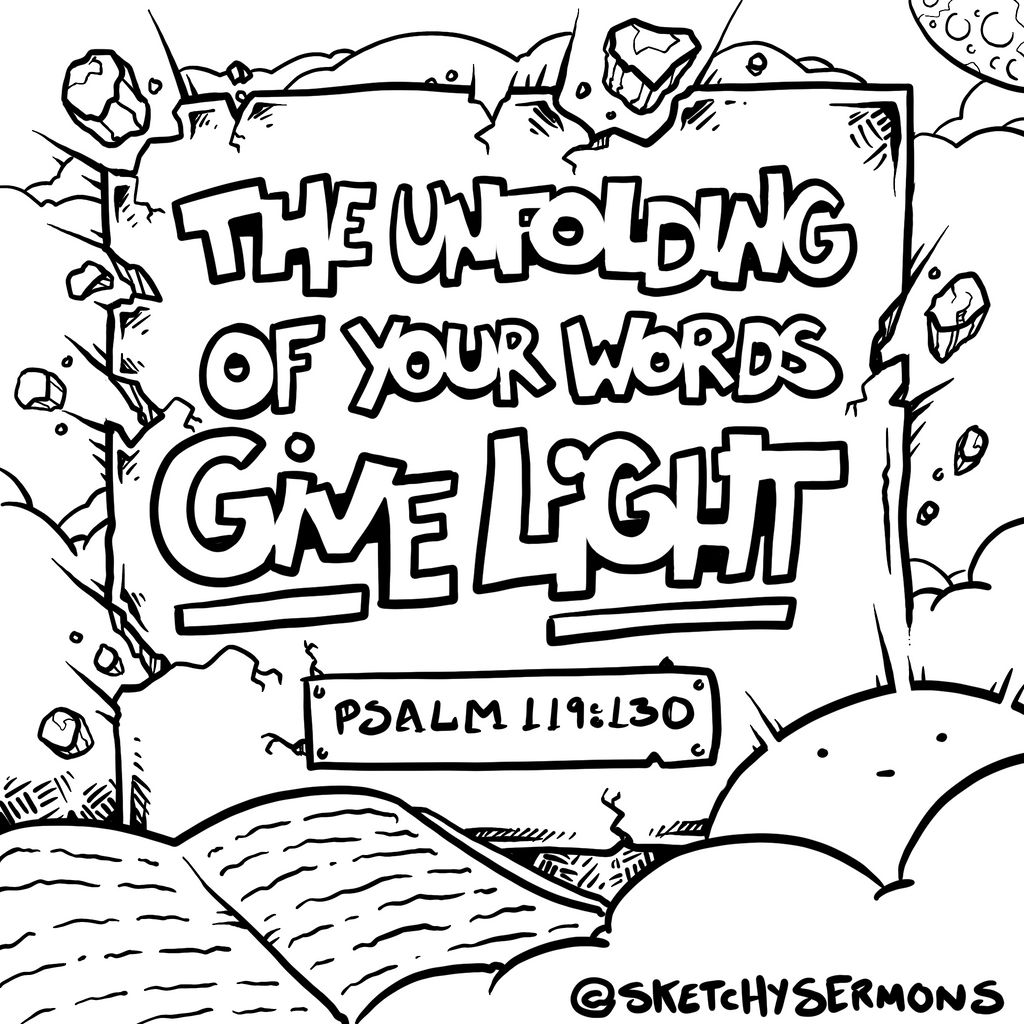 THE UNFOLDING
OF YOUR WORDS
GiVE LiGHT
PSALM 119:130
@SKETCHYSERMONS